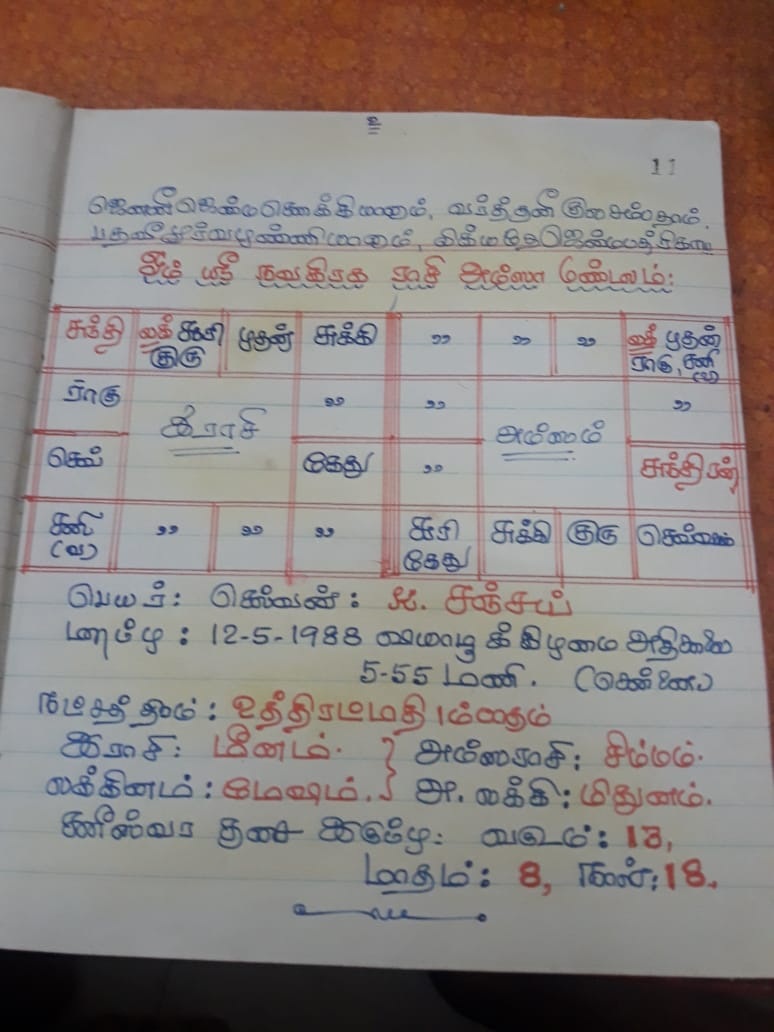 உ
11
ஜெனனீ ஜென்ம சௌக்கியானாம், வர்த்தனீ குல சம்பதாம்,
பதவீ பூர்வ புண்ணியானாம், லிக்யதே ஜென்ம பத்ரிகா
ஓம் ஸ்ரீ நவகிரக ராசி அம்ஸ மண்டலம்:
சந்தி லக் சூரி புதன் சுக்கி ,, ,, ,, லக் புதன்
குரு ராகு, சனி
(வ)
ராகு ,, ,, ,,
இராசி அம்ஸம்
செவ் கேது ,, சந்திரன்
சனி ,, ,, ,, சூரி சுக்கி குரு செவ்வாய்
(வ) கேது
பெயர்: செல்வன்: S. சஞ்சய்
பிறப்பு : 12-5-1988 வியாழக்கிழமை அதிகாலை
5-55 மணி. (சென்னை)
நட்சத்திரம் : உத்திரட்டாதி 1ம் பாதம்
இராசி: மீனம். } அம்ஸராசி: சிம்மம்.
லக்கினம் : மேஷம். } அ. லக்கி : மிதுனம்.
சனீஸ்வர தசை இருப்பு: வருடம்: 13,
மாதம்: 8, நாள்: 18.